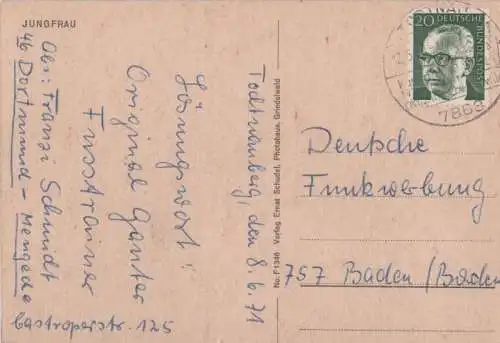 JUNGFRAU
Abs: Franzi Schmidt
46 Dortmund - Mengede
Castroperstr. 125
Lösungswort:
Original Ganter
Fusstrainer
Todtnauberg, den 8.6.71
No. F 1346 Verlag Ernst Schudel, Photohaus, Grindelwald
20 DEUTSCHE
BUNDESPOST
7868
Deutsche
Funkwerbung
757 Baden/Baden